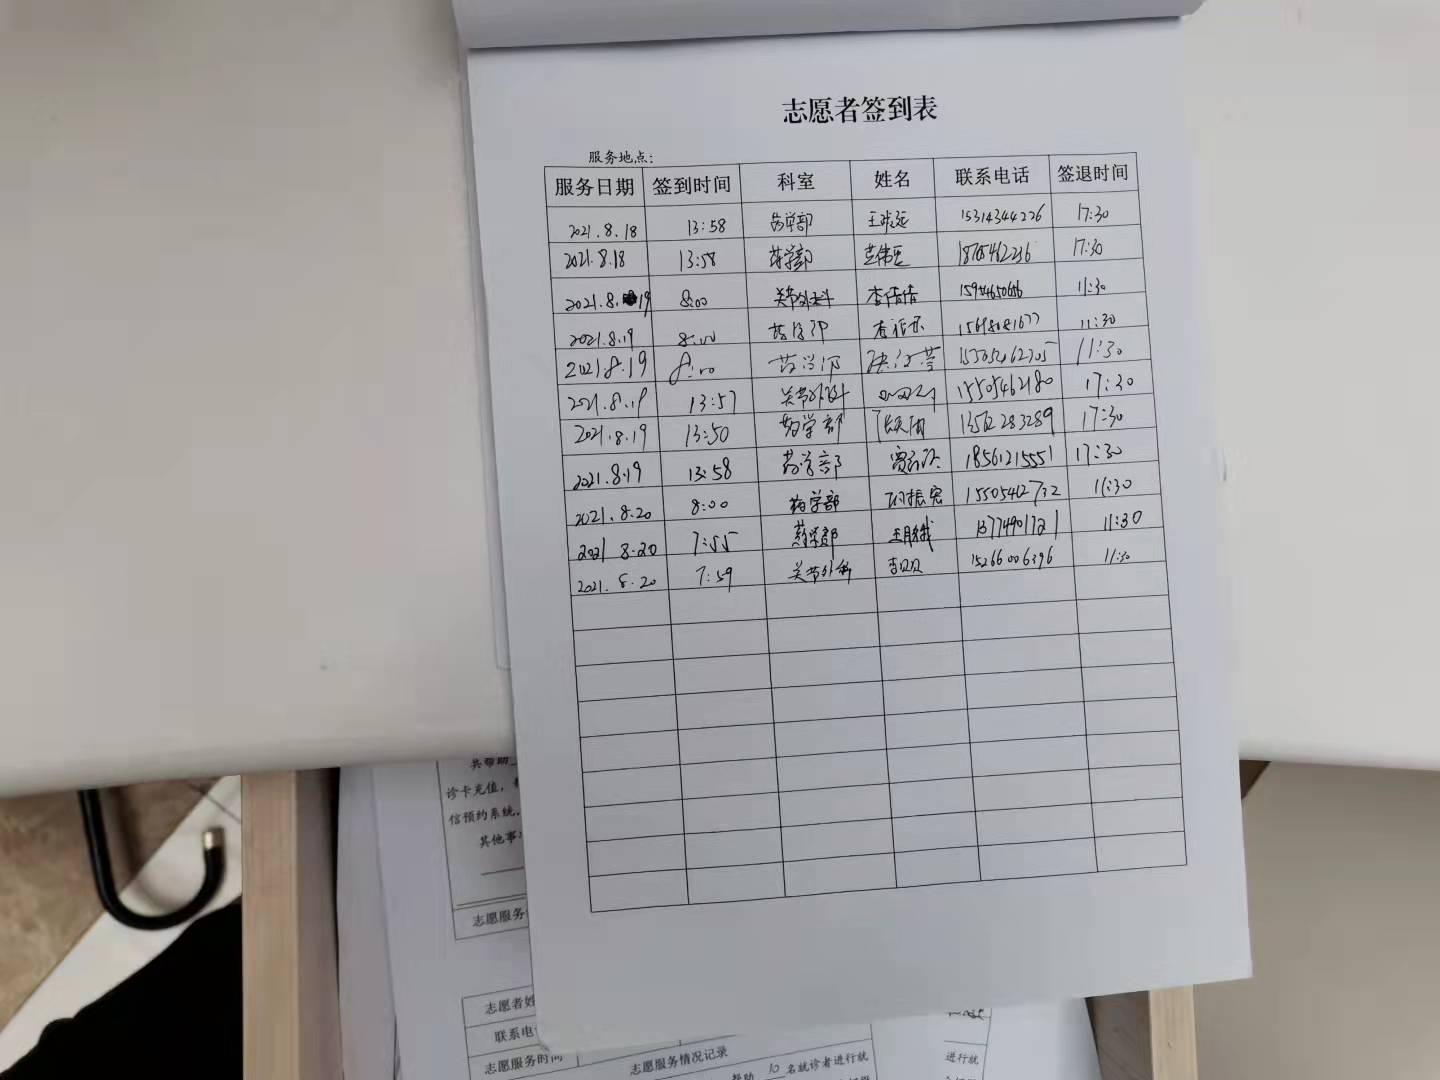 志愿者签到表
服务地点:
服务日期 签到时间 科室 姓名 联系电话 签退时间
2021.8.18 13:58 药学部 15314344226 17:30
2021.8.18 13:58 药学部 17:30
2021.8.19 8:00 关节外科 李倩倩 11:30
2021.8.19 8:00 药学部 11:30
2021.8.19 8:00 药学部 11:30
2021.8.19 13:57 关节外科 15505462180 17:30
2021.8.19 13:50 药学部 13562283289 17:30
2021.8.19 13:58 药学部 18561215551 17:30
2021.8.20 8:00 药学部 15505462732 11:30
2021 8.20 7:55 药学部 王月娥 11:30
2021.8.20 7:59 关节外科 李贝贝 15266006396 11:30
共帮助
诊卡充值,
信预约系统.
其他事
志愿服务
志愿者姓
联系电
志愿服务时间
志愿服务情况记录
帮助 10 名就诊者进行就
进行就